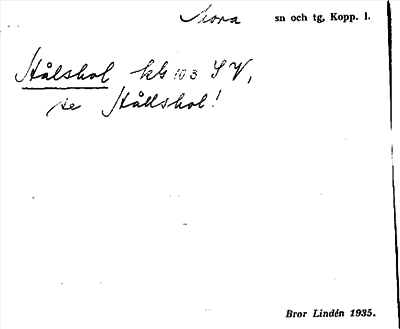 Mora sn och tg, Kopp. l.
Stålshol kbl 103 SV,
se Stållshol!
Bror Lindén 1935.